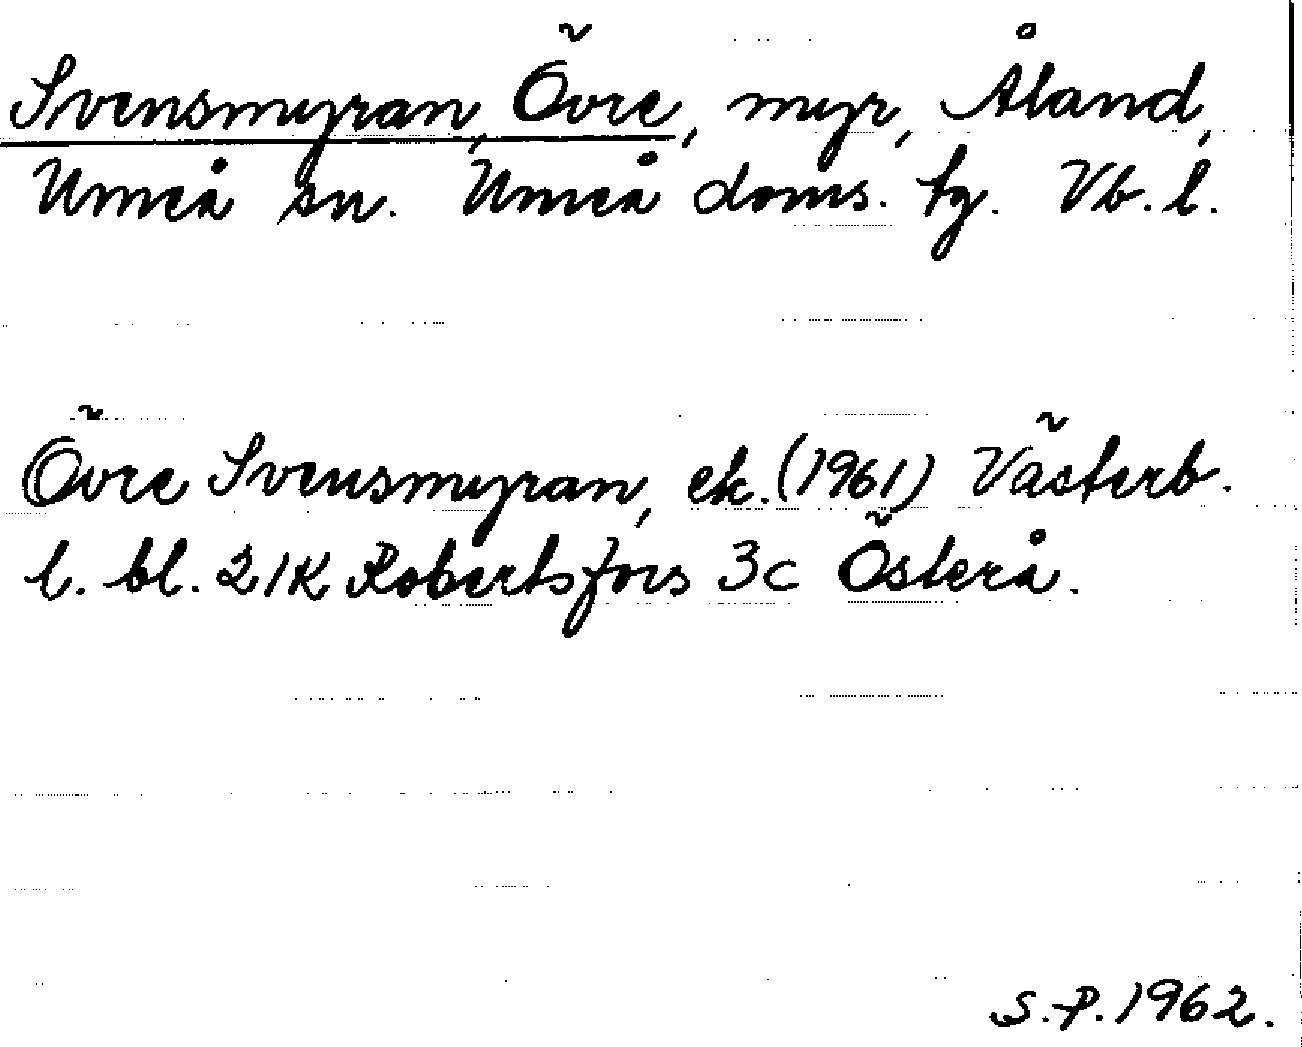 Svensmyran, Övre, myr, Åland,
Umeå sn. Umeå doms. tg. Vb. l.
Övre Svensmyran, ek. (1961) Västerb.
l. bl. 21K Robertsfors 3c Österå.
S. P. 1962.